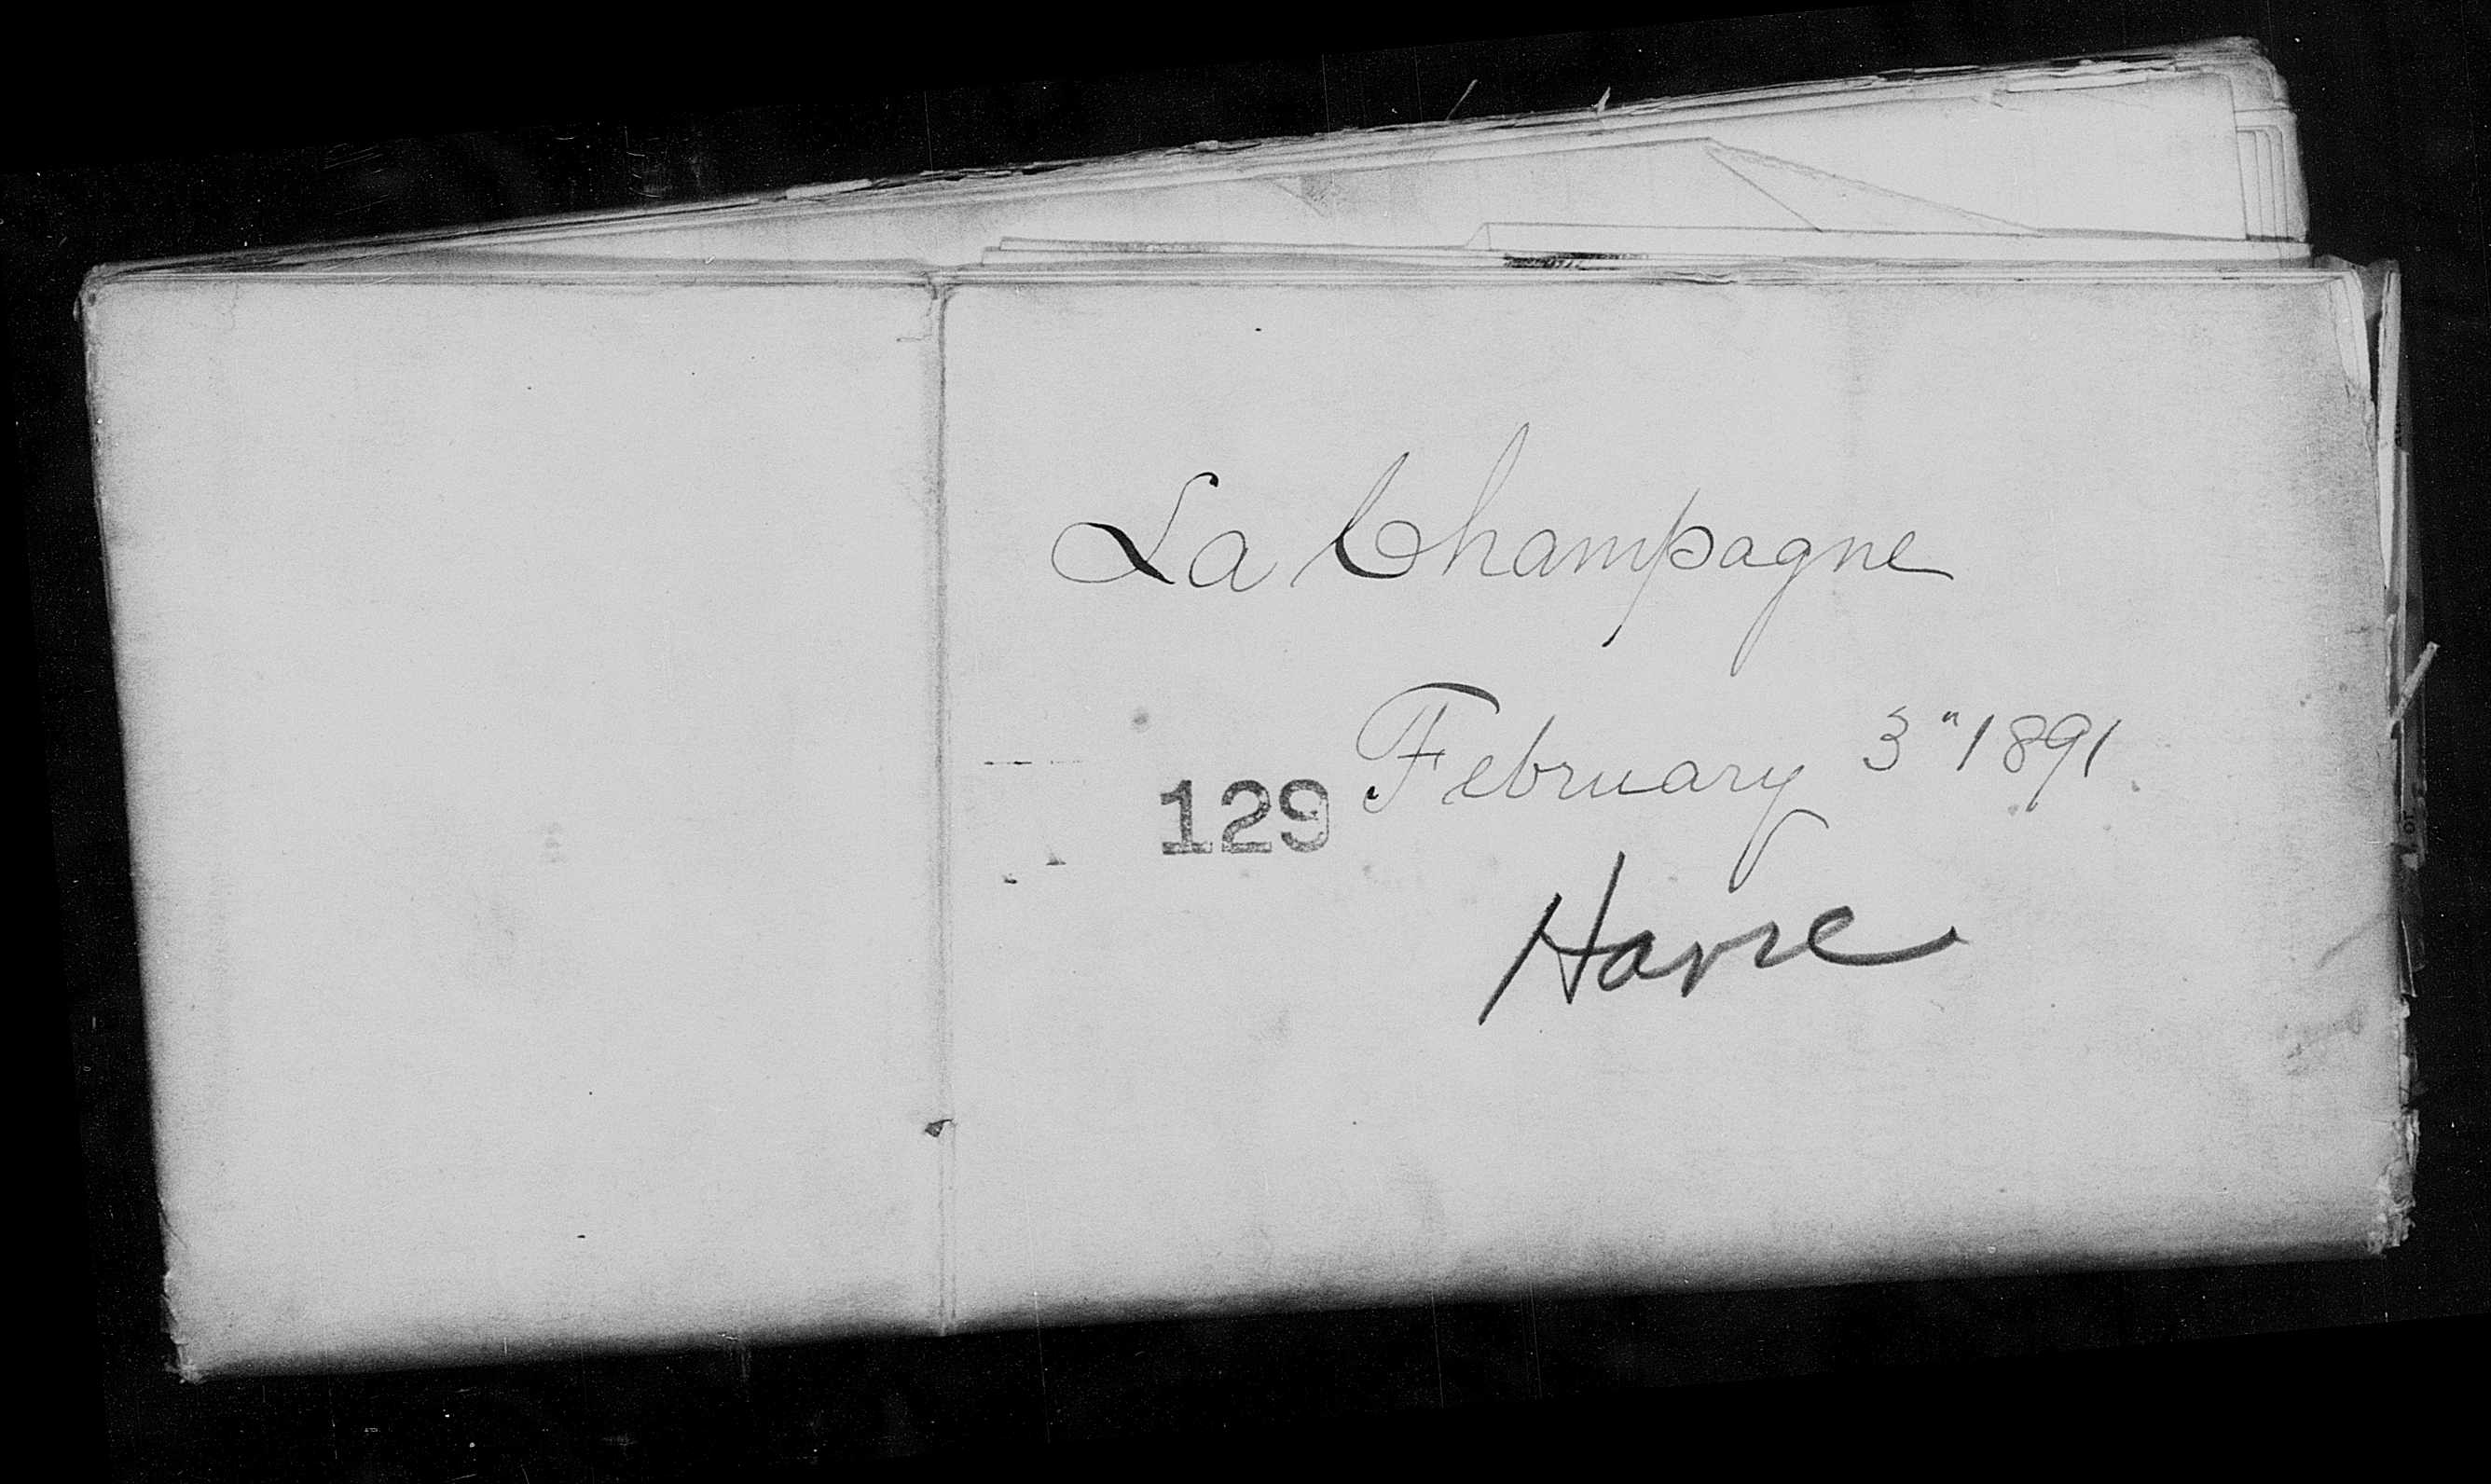 La Champagne
February 3" 1891
129
Havre